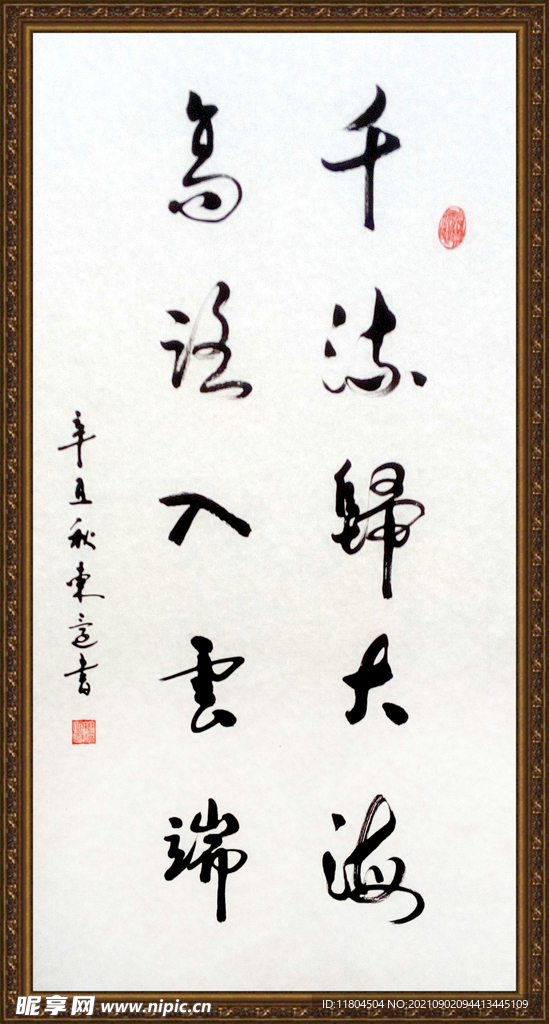 千流歸大海
高路入雲端
辛丑秋東書
昵享网 www.nipic.cn
ID:11804504 NO:20210902094413445109